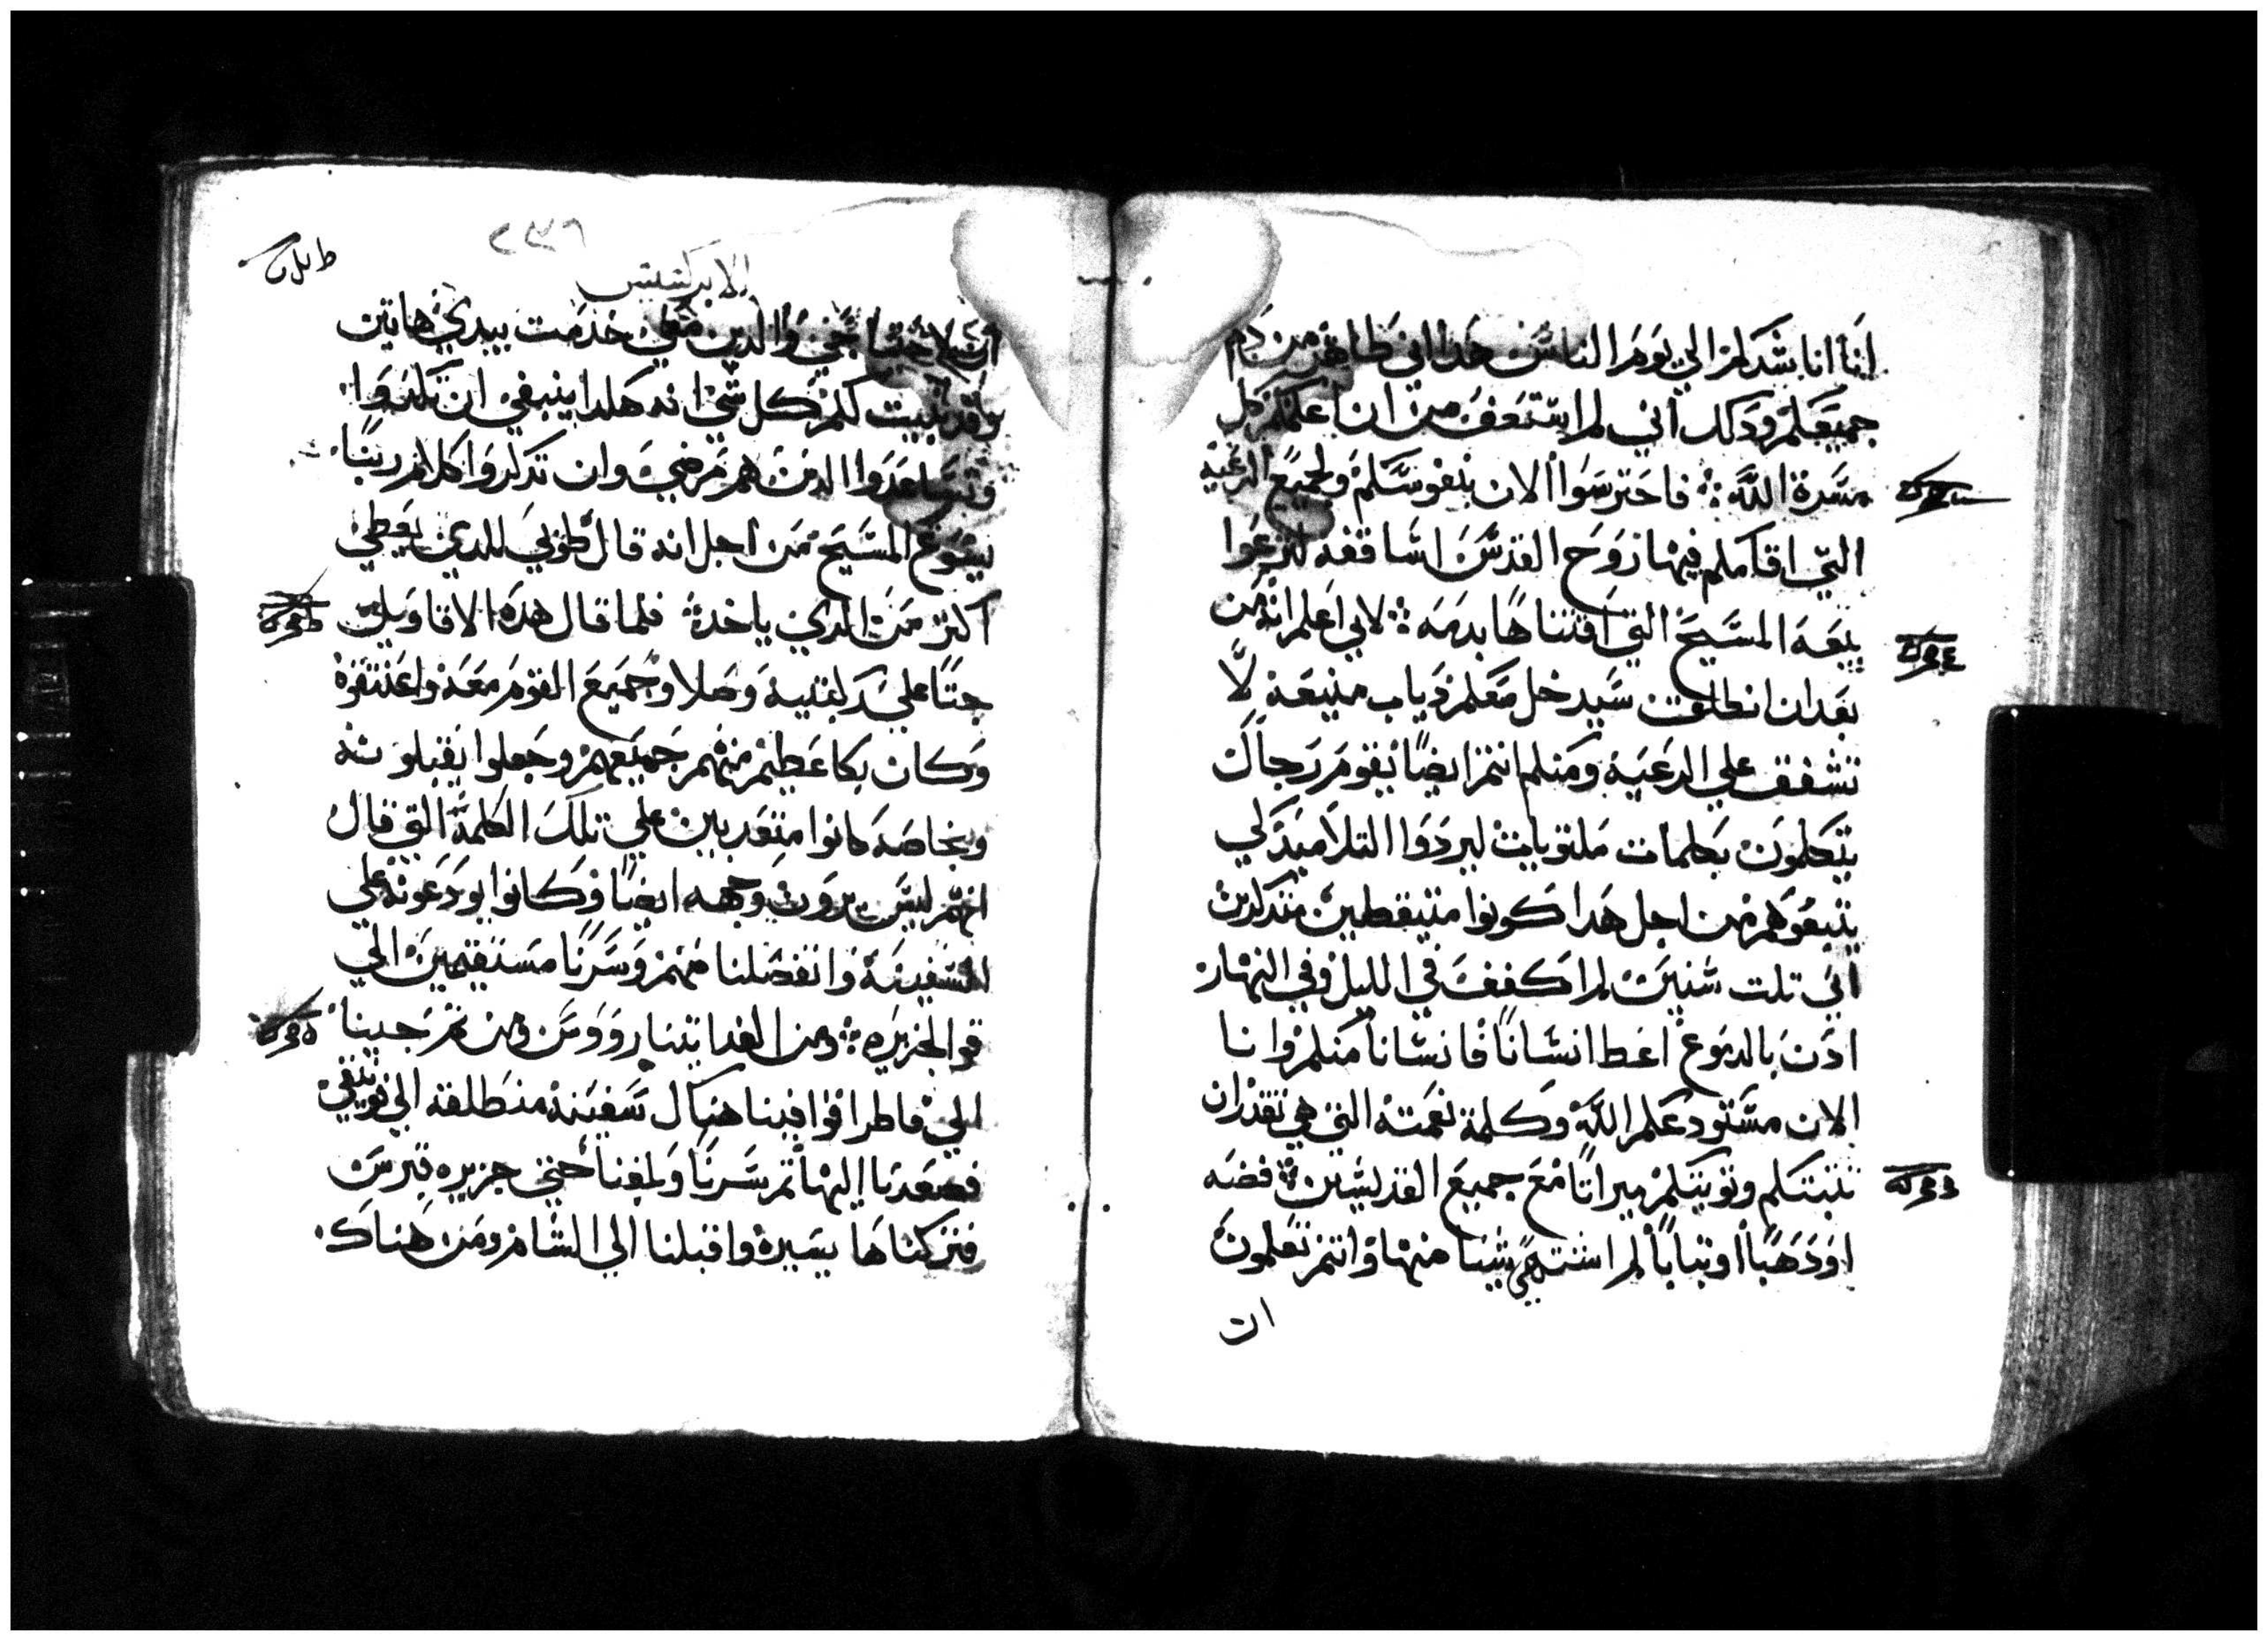 انا اناشدكم الي يوم الناس هدا اني طاهر من دم
جميعكم ودلك اني لم استعف من ان اعلمكم كل
مسرة الله فاحترسوا الان بنفوسكم ولجميع الرعيه
التي اقامكم فيها روح القدس اساقفه لترعوا
بيعه المسيح التي اقتناها بدمه لاني اعلم انه من
بعد ان انطلق سيدخل معكم دياب منيعه لا
تشفق علي الرعيه ومنكم انتم ايضًا يقوم رجال
يتكلمون بكلمات ملتويات ليردوا التلاميد لكي
يتبعوهم من اجل هدا كونوا متيقظين متدكرين
اني تلت سنين لم اكفف في الليل وفي النهار
اد بالدموع اعظ انسانًا فانسانًا منكم وانا
الان مستودعكم الله وكلمة نعمته التي هي تقدر ان
تتبتكم وتويتكم ميراتًا مع جميع القديسين فضه
او دهبًا او تيابًا لم اشتهي شيا منها وانتم تعلمون
ان
الابركسيس
٢٣٩
ان لاحتياجي والدين معي خدمت يبدي هاتين
وقد بينت لكم كل شي انه هكدا ينبغي ان تكدوا
وتساعدوا الدين هم مرضي وان تدكروا كلام ربنا
يسوع المسيح من اجل انه قال طوبي للدي يعطي
اكتر من الدي ياخد فلما قال هده الاقاويل
جتا علي ركبتيه وصلا وجميع القوم معه واعتنقوه
وكان بكا عظيم منهم جميعهم وجعلوا يقبلونه
وبخاصه كانوا متعدبين علي تلك الكلمة التي قال
انهم ليس يرون وجهه ايضًا وكانوا يودعونه علي
السفينه وانفصلنا منهم وسرنا مستقيمين الي
قو الجزيره ومن الغد اتينا رودس ومن تم جينا
الي فاطرا فوافينا هناك سفينه منطلقه الي فونيقي
فصعدنا اليها تم سرنا وبلغنا حتي جزيره قبرس
فتركناها يسيره واقبلنا الي الشام ومن هناك